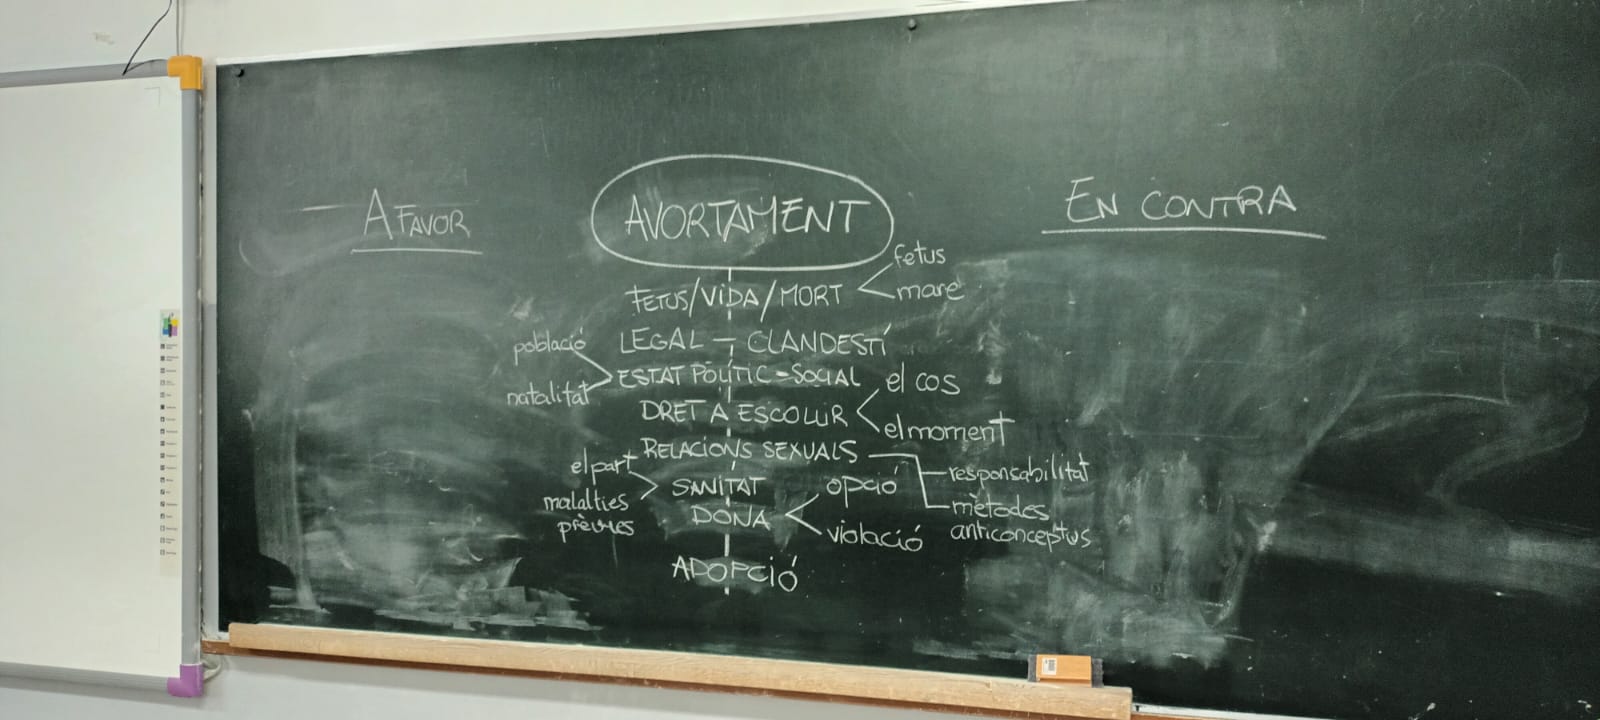 A FAVOR
AVORTAMENT
EN CONTRA
FETUS/VIDA/MORT
fetus
mare
LEGAL - CLANDESTÍ
ESTAT POLÍTIC-SOCIAL
població
natalitat
DRET A ESCOLLIR
el cos
el moment
RELACIONS SEXUALS
responsabilitat
mètodes
anticonceptius
SANITAT
el part
malalties
prèvies
DONA
opció
violació
ADOPCIÓ